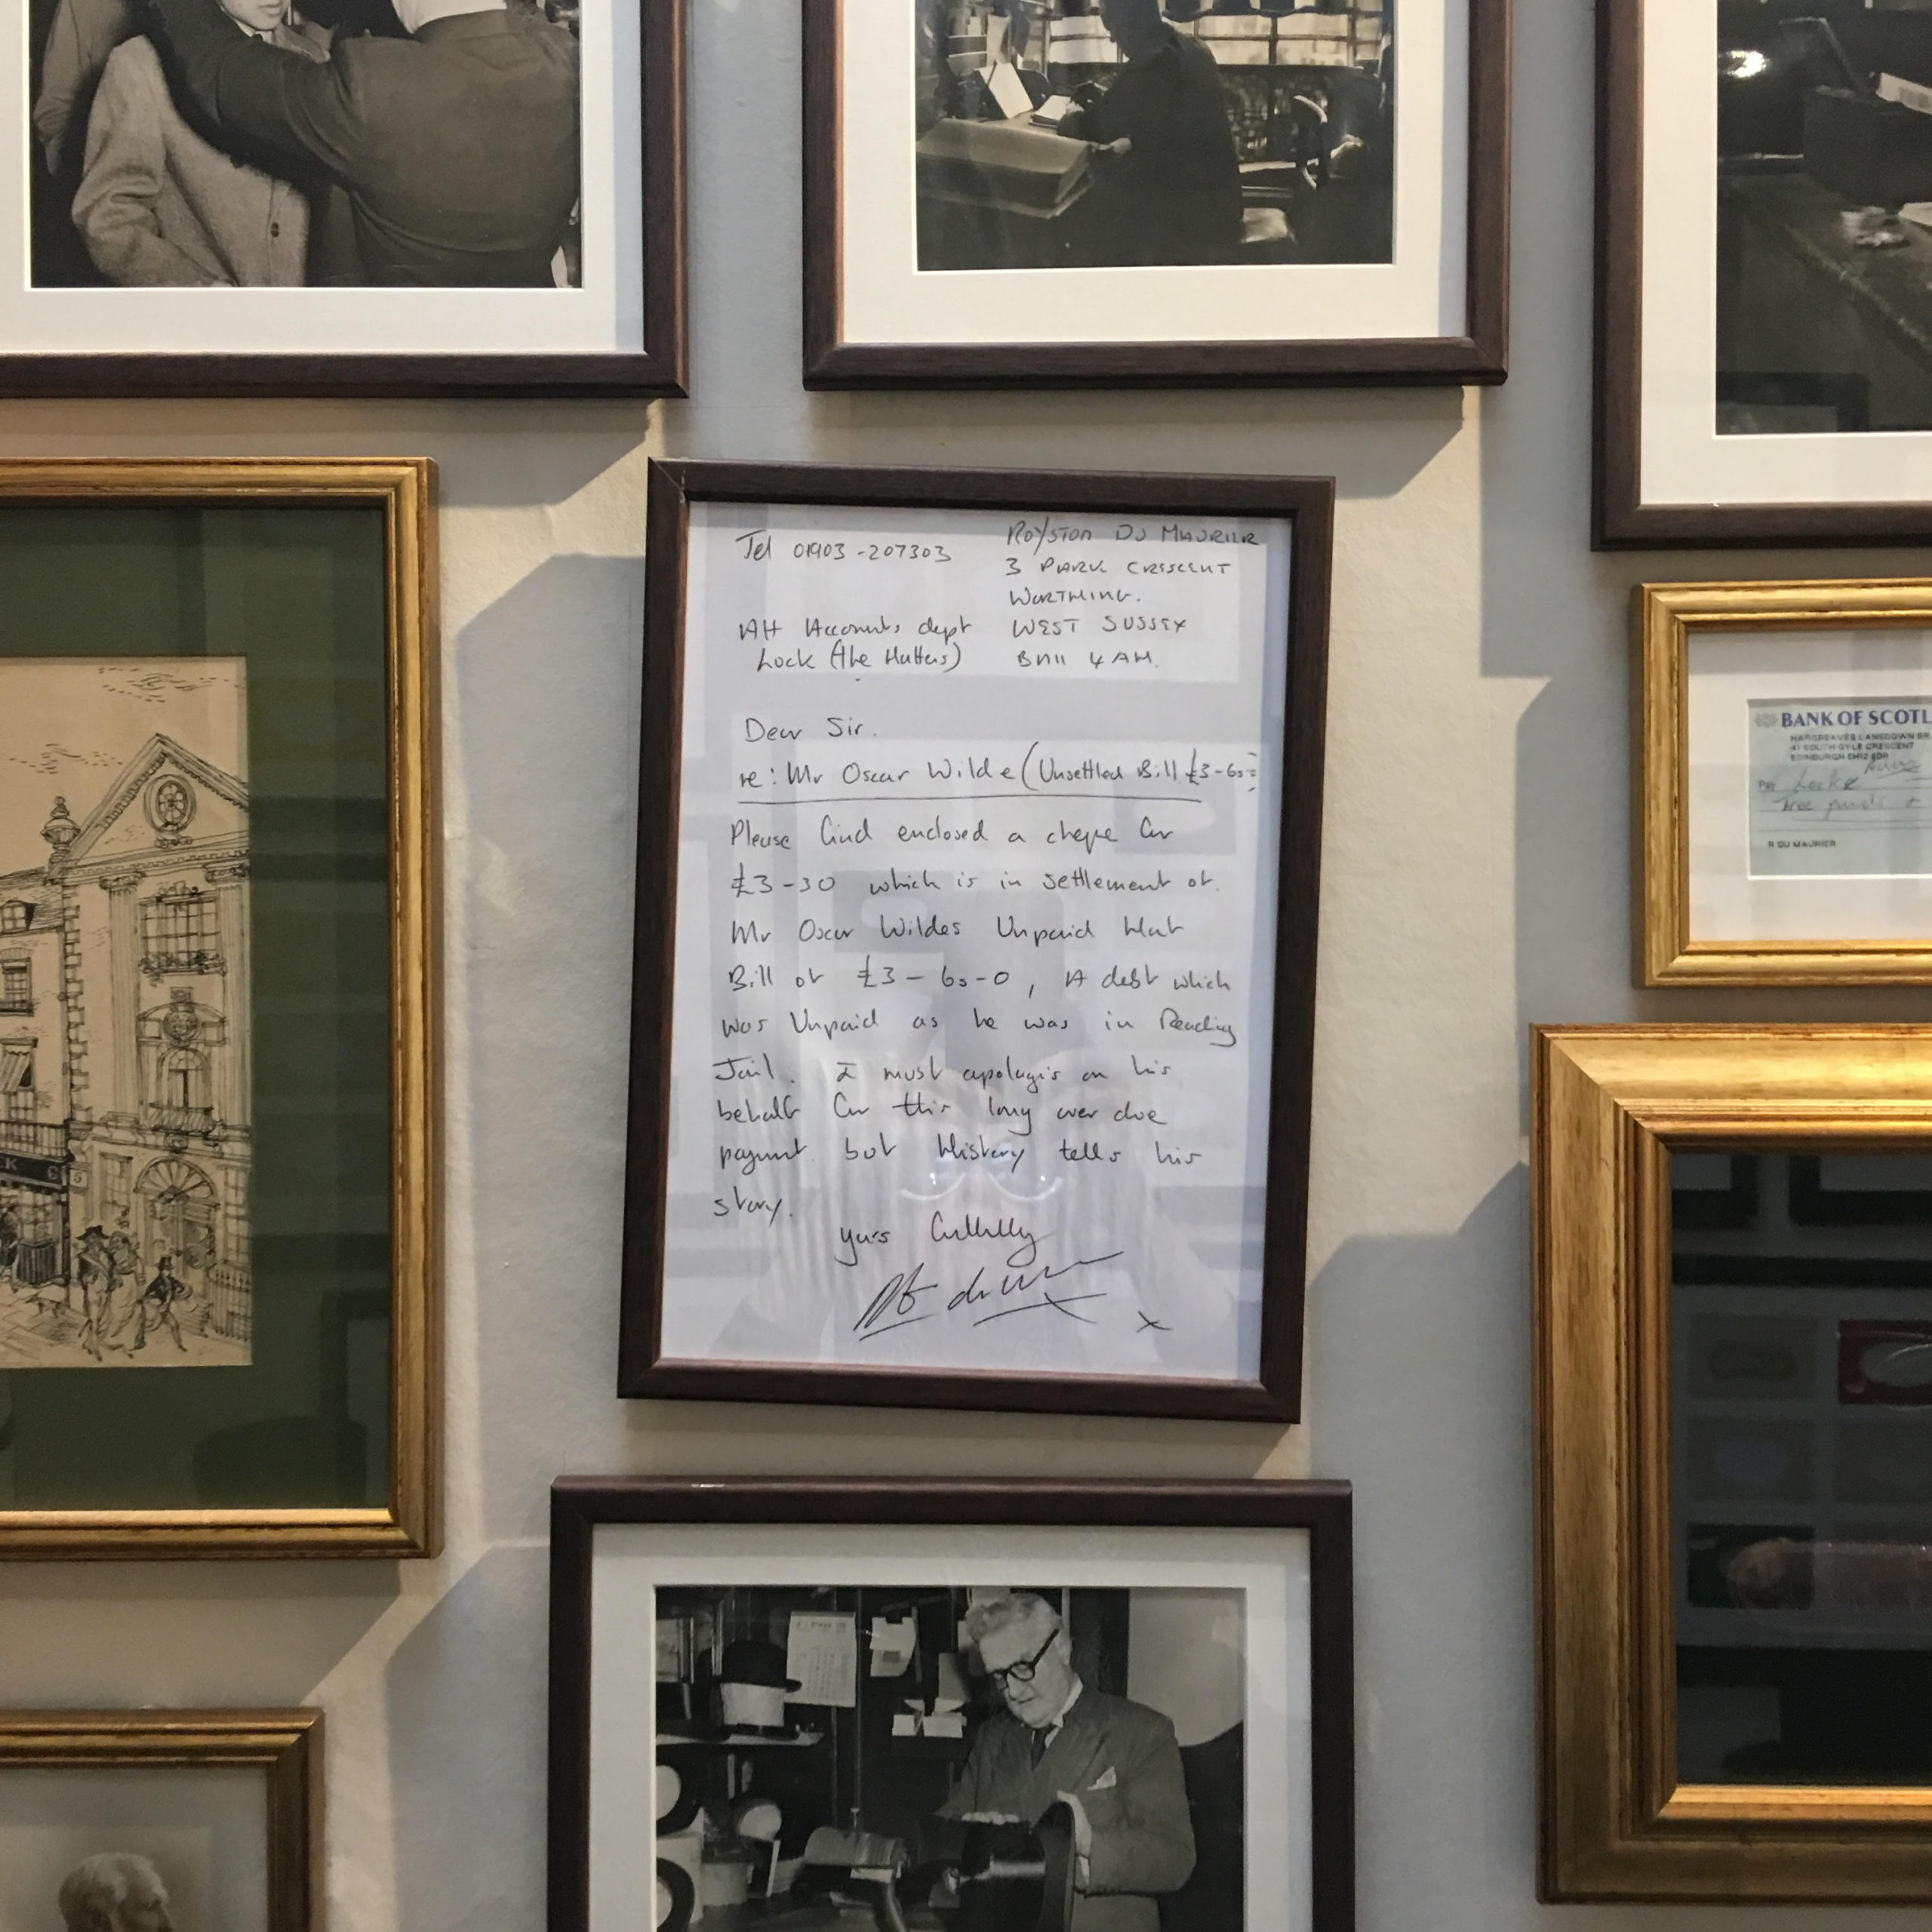 Tel 01903-207303
ROYSTON DU MAURIER
3 PARK CRESCENT
WORTHING.
WEST SUSSEX
BN11 4AH.
Att Accounts dept
Lock (the Hatters)
Dear Sir.
re: Mr Oscar Wilde (Unsettled Bill £3-6s
Please find enclosed a cheque for
£3-30 which is in settlement of.
Mr Oscar Wildes Unpaid Hat
Bill of £3-6s-0, A debt which
was Unpaid as he was in Reading
Jail. I must apologis on his
behalf for this long over due
payment but History tells his
story.
yours
BANK OF SCOTL
HARGREAVES LANSDOWN BR
41 SOUTH GYLE CRESCENT
EDINBURGH EH12
Pay
R DU MAURIER
K 6